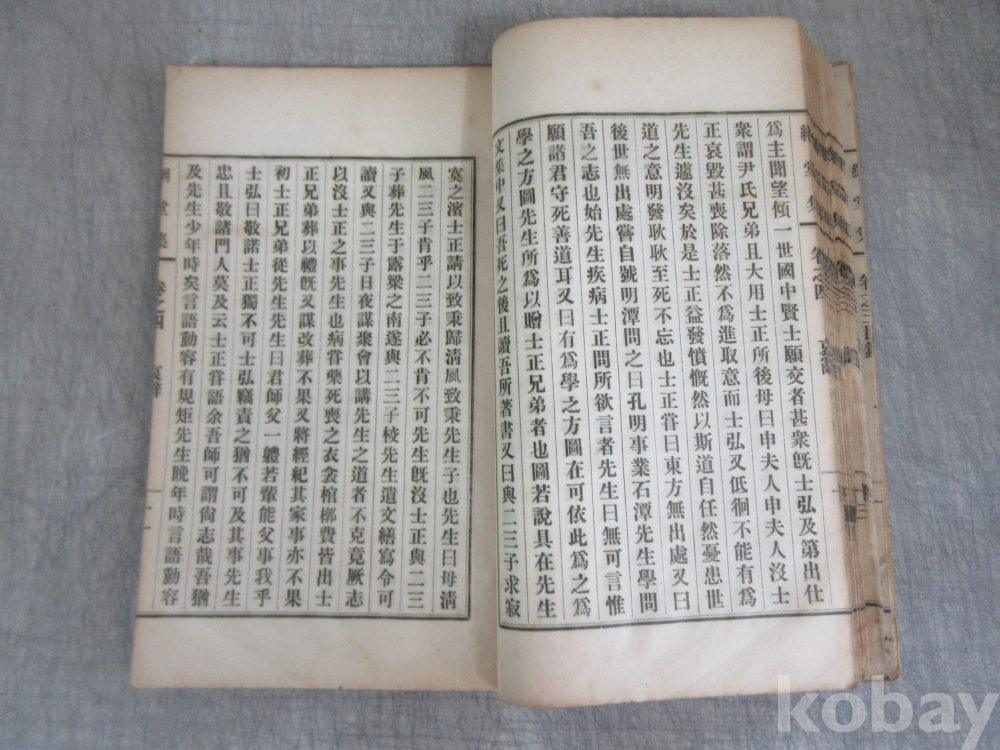 爲主聞望傾一世國中賢士願交者甚衆旣士弘及第出仕
衆謂尹氏兄弟且大用士正所後母曰申夫人申夫人沒士
正哀毀甚喪除落然不爲進取意而士弘又低徊不能有爲
先生遽沒矣於是士正益發憤慨然以斯道自任然憂患世
道之意明發耿耿至死不忘也士正甞曰東方無出處又曰
後世無出處甞自號明潭問之曰孔明事業石潭先生學問
吾之志也始先生疾病士正問所欲言者先生曰無可言惟
願諸君守死善道耳又曰有爲學之方圖在可依此爲之爲
學之方圖先生所爲以贈士正兄弟者也圖若說具在先生
文集中又曰吾死之後且讀吾所著書又曰與二三子求寂
寞之濱士正請以致秉歸淸風致秉先生子也先生曰母淸
風二三子肯乎二三子必不肯不可先生旣沒士正與二三
子葬先生于露梁之南遂與二三子校先生遺文繕寫令可
讀又與二三子日夜謀聚會以講先生之道者不克竟厥志
以沒士正之事先生也病甞藥死喪之衣衾棺槨費皆出士
正兄弟葬以禮旣又謀改葬不果又將經紀其家事亦不果
初士正兄弟從先生先生曰君師父一軆若輩能父事我乎
士弘曰敬諾士正獨不可士弘竊責之猶不可及其事先生
忠且敬諸門人莫及云士正甞語余吾師可謂尙志哉吾猶
及先生少年時矣言語動容有規矩先生晩年時言語動容
堂集 卷之四 哀辭